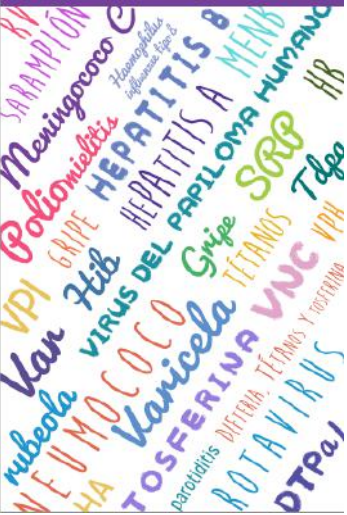 SARAMPIÓN
Meningococo C
Haemophilus
influenzae tipo b
HEPATITIS B
MENB
Poliomielitis
HEPATITIS A
VIRUS DEL PAPILOMA HUMANO
HB
GRIPE
SRP
Tdpa
VPI
Hib
Gripe
TÉTANOS
VPH
Var
VNC
rubeola
NEUMOCOCO
Varicela
TOSFERINA
DIFTERIA, TÉTANOS Y TOSFERINA
HA
parotiditis
ROTAVIRUS
DTPa/